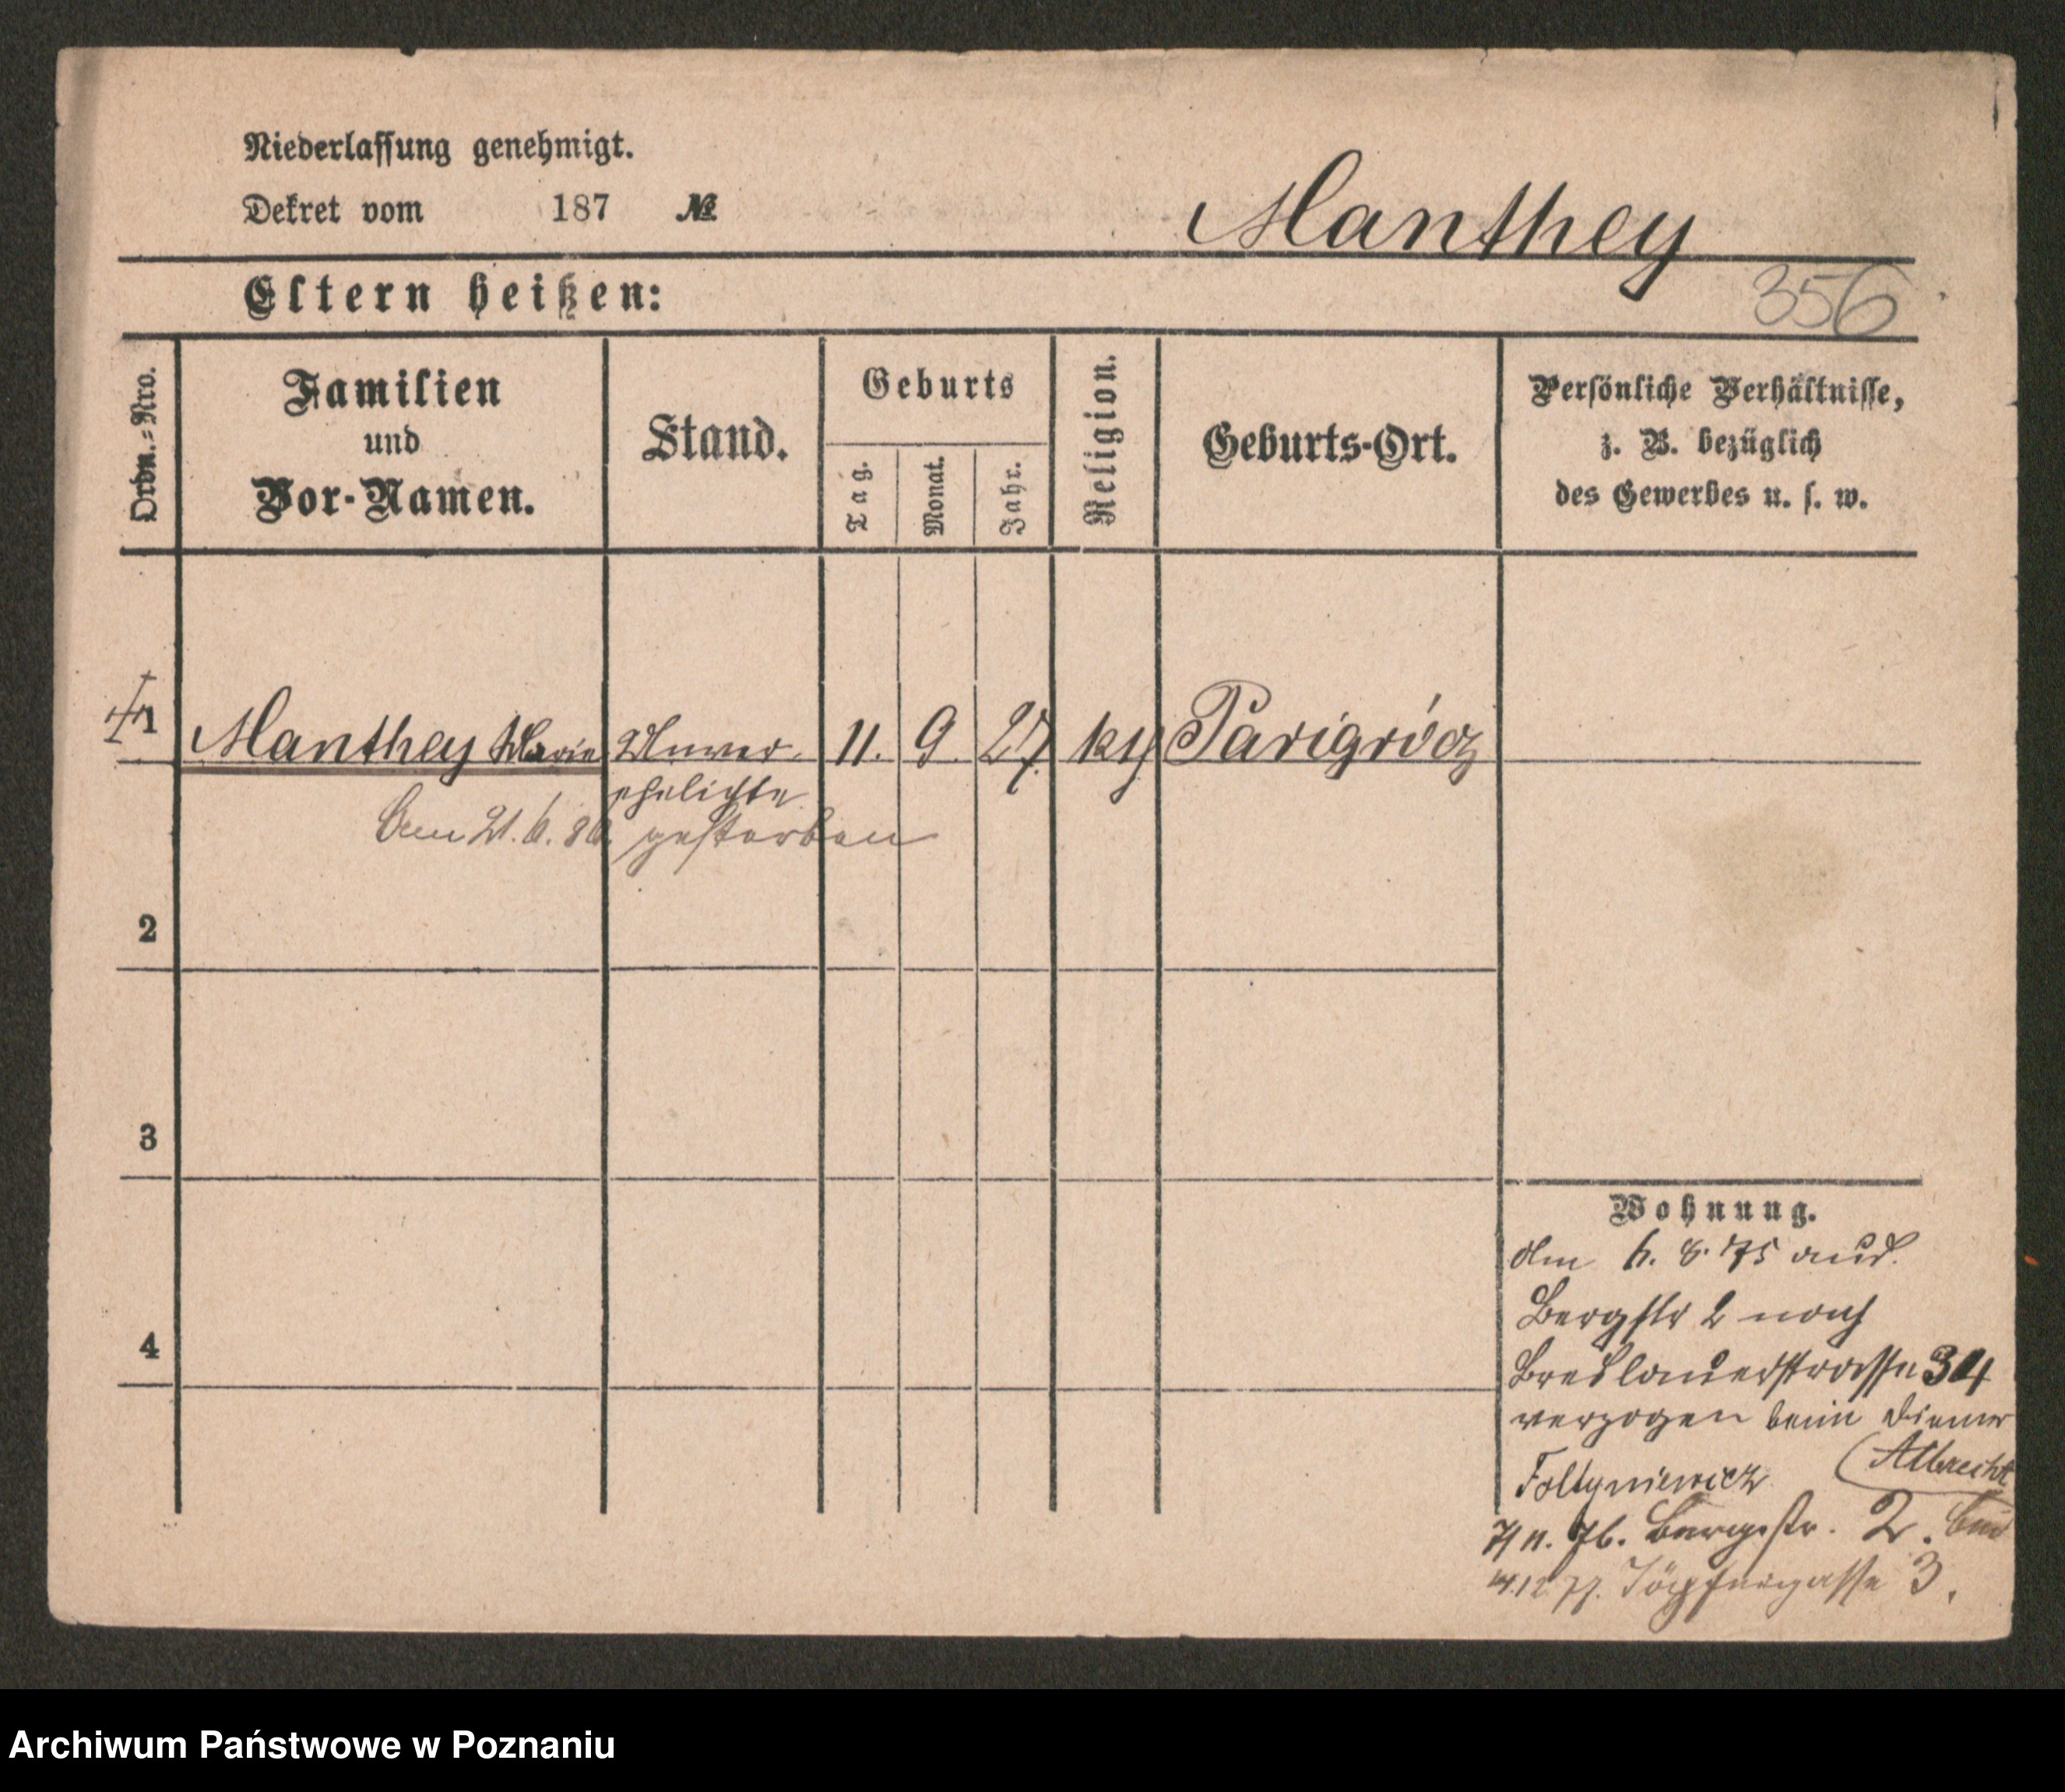 Niederlassung genehmigt.
Dekret vom 187 №
Manthey
356
Eltern heißen:
Ordn.-Nro.
Familien
und
Vor-Namen.
Stand.
Geburts
Tag.
Monat.
Jahr.
Religion.
Geburts-Ort.
Persönliche Verhältnisse,
z. B. bezüglich
des Gewerbes u. s. w.
1 Manthey Marie Unver- 11. 9. 27 kth Parigródz
ehelichte
Am 21. 6. 86. gestorben
2
3
4
Wohnung.
Am 6. 8. 75 aus
Bergstr 2 nach
Breslauerstrasse 34
verzogen beim Diener
Foltyniewicz (Albrecht
7/11. 76. Bergstr. 2. bei
4.12 77. Töpfergasse 3.
Archiwum Państwowe w Poznaniu